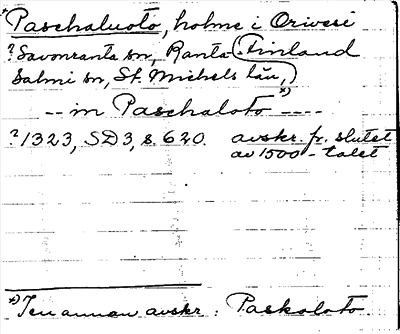 *Paschaluoto, holme i Orivesi
? Savonranta sn, Ranta (Finland
Salmi sn, St. Michels län,)
-- in Paschaloto *) ----
? 1323, SD 3, s. 620. avskr. fr. slutet
av 1500-talet
*) I en annan avskr.: Paskoloto.